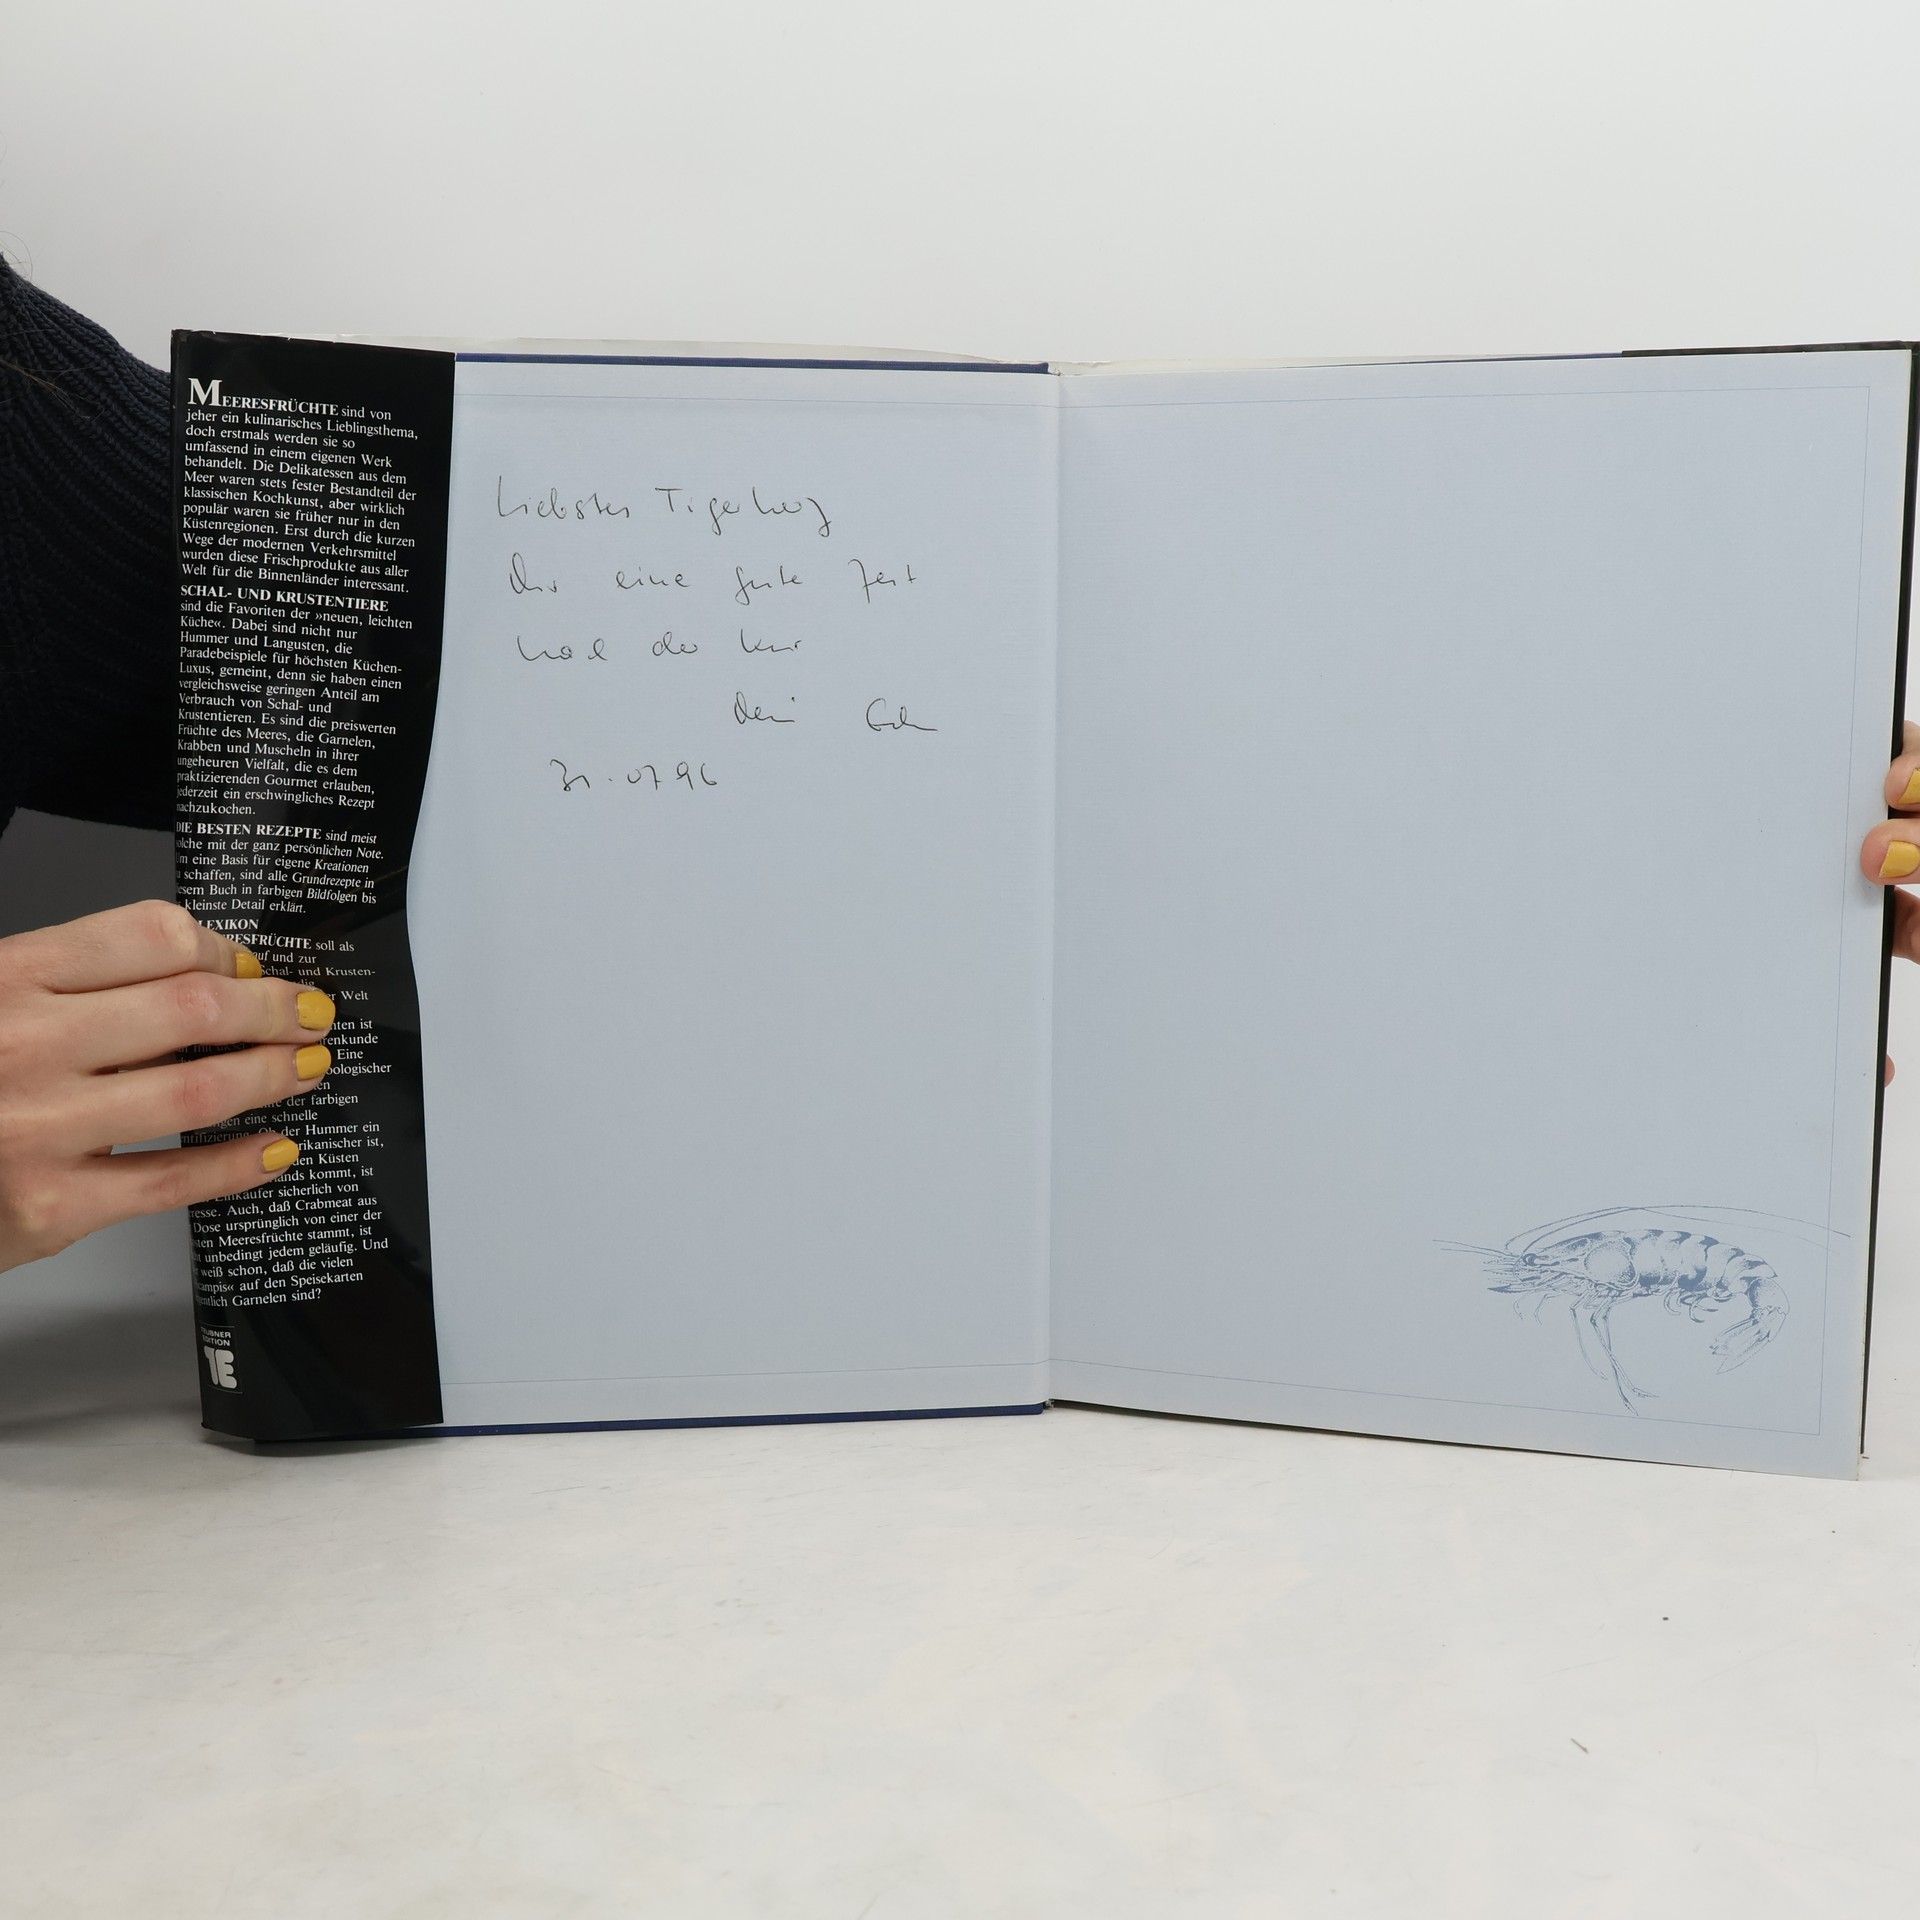 MEERESFRÜCHTE sind von
jeher ein kulinarisches Lieblingsthema,
doch erstmals werden sie so
umfassend in einem eigenen Werk
behandelt. Die Delikatessen aus dem
Meer waren stets fester Bestandteil der
klassischen Kochkunst, aber wirklich
populär waren sie früher nur in den
Küstenregionen. Erst durch die kurzen
Wege der modernen Verkehrsmittel
wurden diese Frischprodukte aus aller
Welt für die Binnenländer interessant.
SCHAL- UND KRUSTENTIERE
sind die Favoriten der »neuen, leichten
Küche«. Dabei sind nicht nur
Hummer und Langusten, die
Paradebeispiele für höchsten Küchen-
Luxus, gemeint, denn sie haben einen
vergleichsweise geringen Anteil am
Verbrauch von Schal- und
Krustentieren. Es sind die preiswerten
Früchte des Meeres, die Garnelen,
Krabben und Muscheln in ihrer
ungeheuren Vielfalt, die es dem
praktizierenden Gourmet erlauben,
jederzeit ein erschwingliches Rezept
nachzukochen.
DIE BESTEN REZEPTE sind meist
solche mit der ganz persönlichen Note.
Um eine Basis für eigene Kreationen
schaffen, sind alle Grundrezepte in
diesem Buch in farbigen Bildfolgen bis
kleinste Detail erklärt.
LEXIKON
MEERESFRÜCHTE soll als
und zur
Schal- und Krusten-
Welt
ist
Eine
der farbigen
eine schnelle
der Hummer ein
ist,
den Küsten
kommt, ist
Einkäufer sicherlich von
Auch, daß Crabmeat aus
Dose ursprünglich von einer der
Meeresfrüchte stammt, ist
unbedingt jedem geläufig. Und
weiß schon, daß die vielen
auf den Speisekarten
Garnelen sind?
TEUBNER
EDITION
TE
Liebstes Tigerherz
Dir eine gute Zeit
nach der Kur
Dein
31.07.96